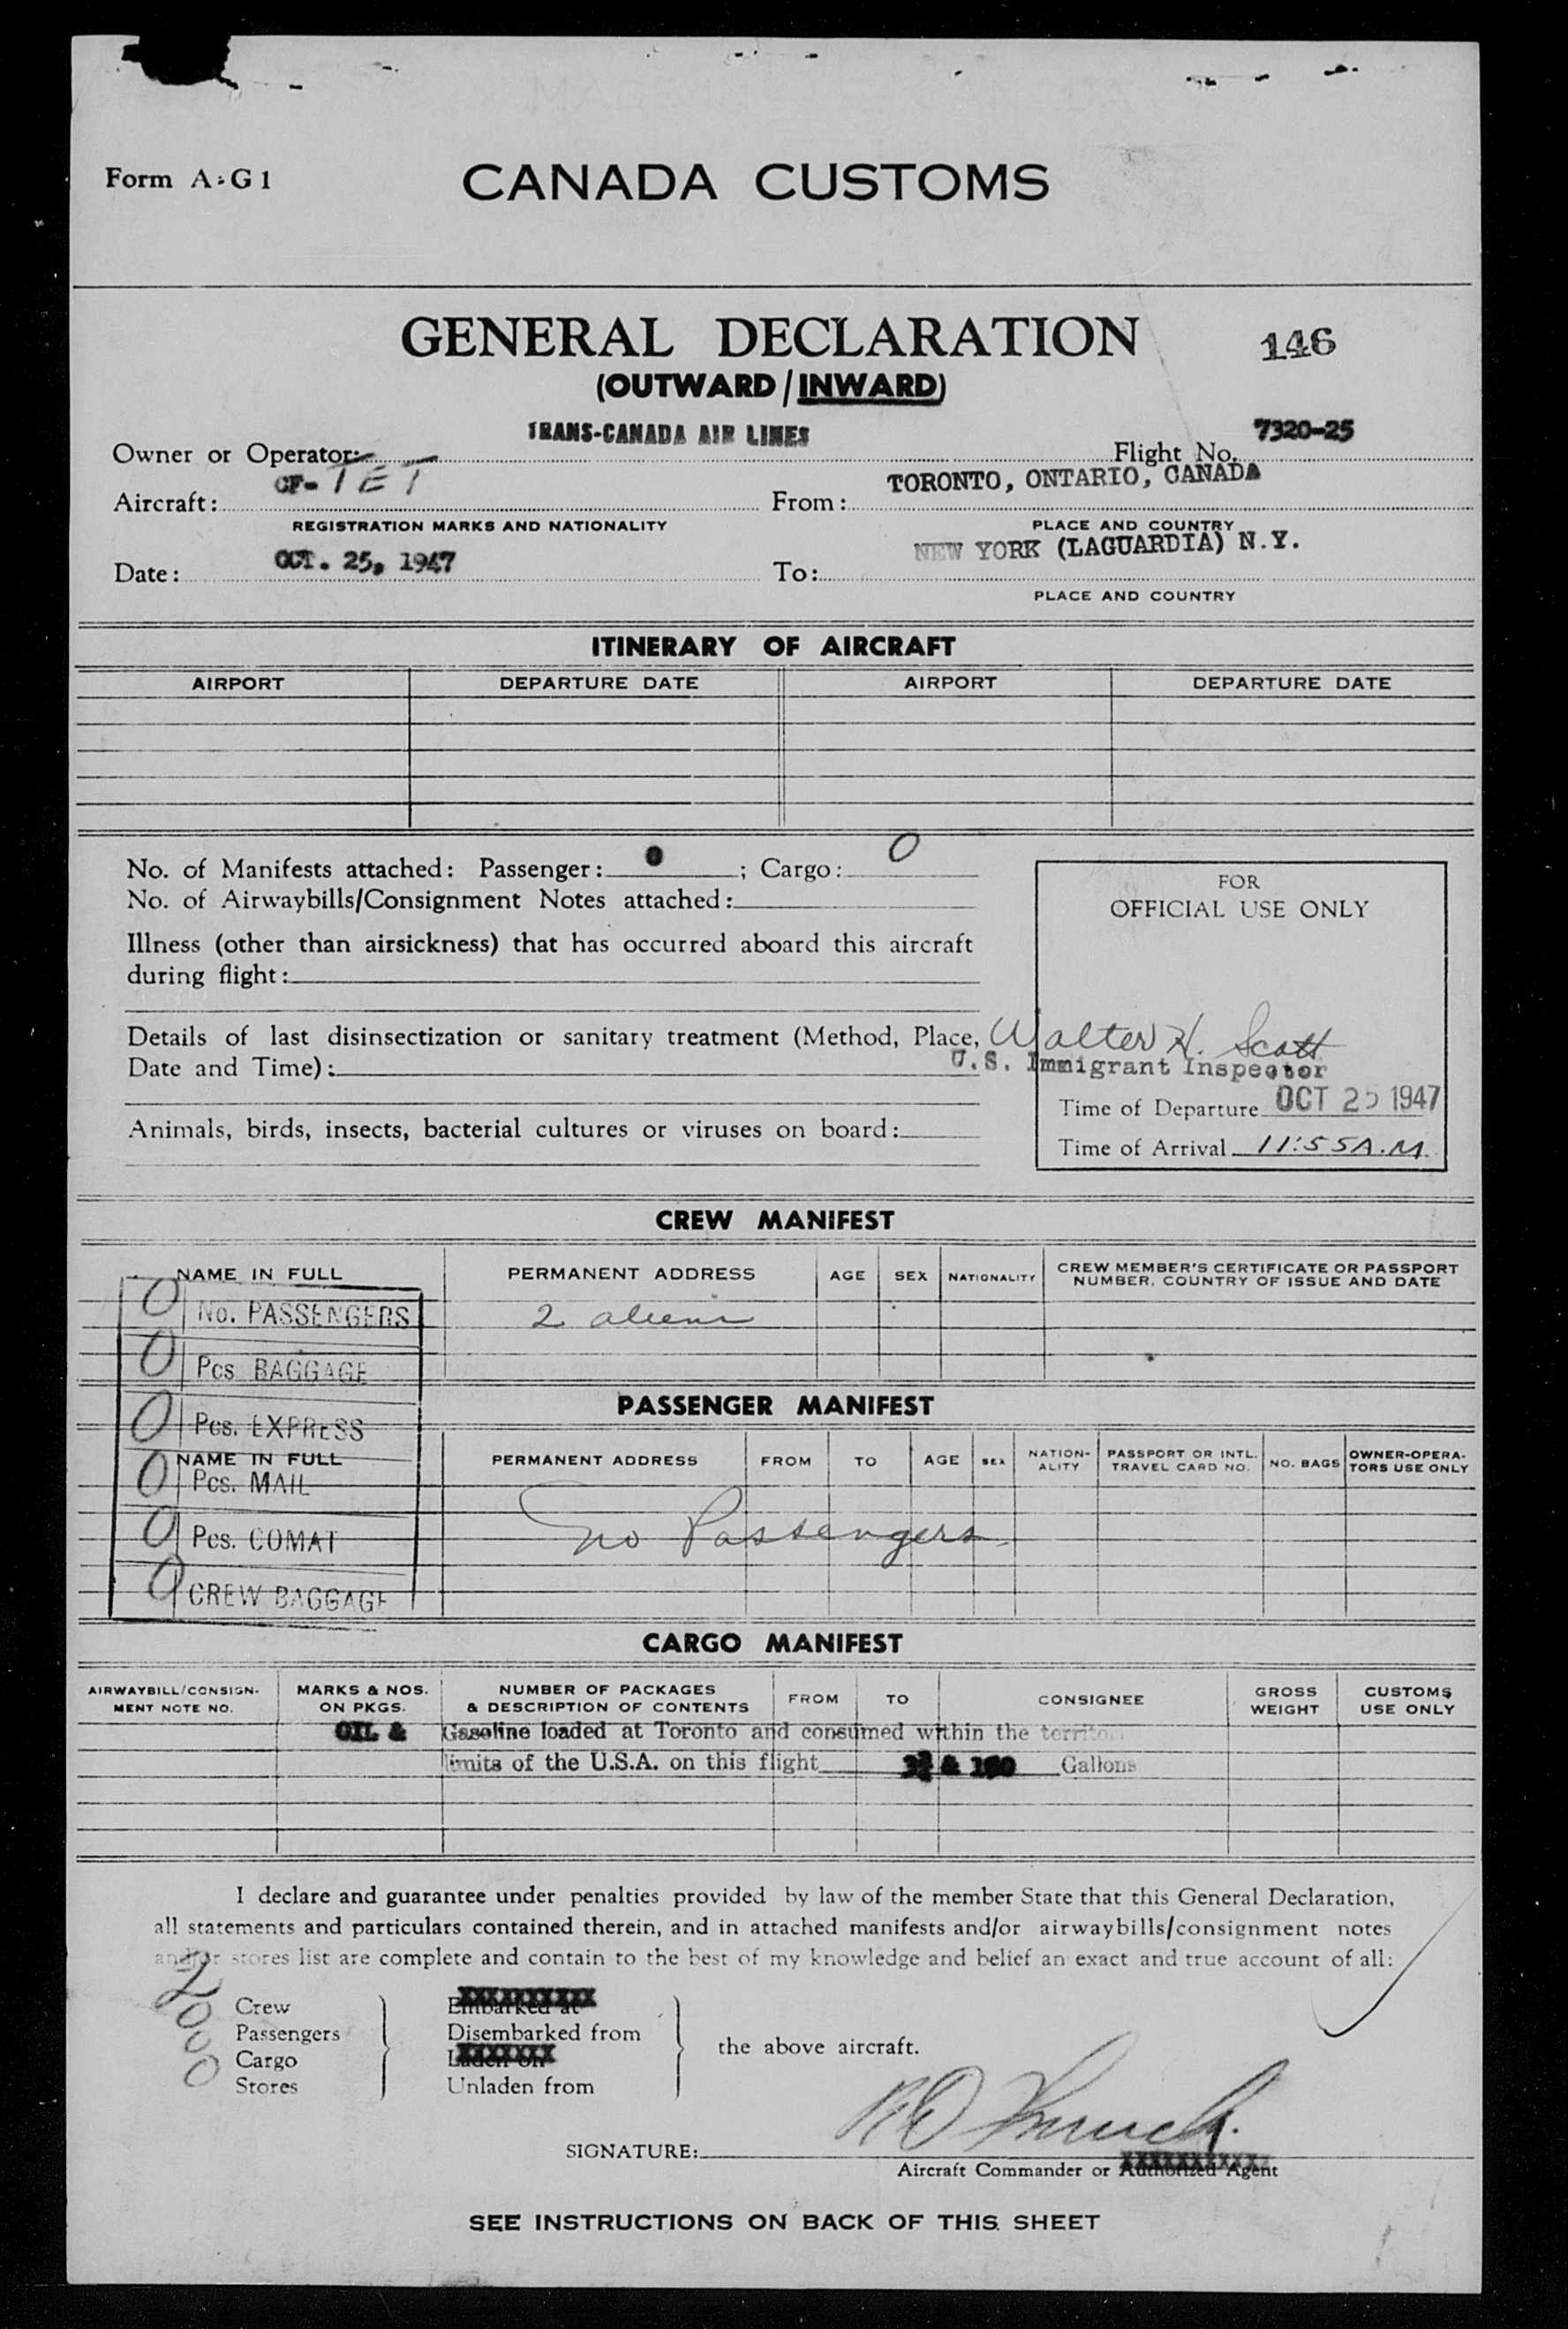 Form A-G1
CANADA CUSTOMS
GENERAL DECLARATION
146
(OUTWARD/INWARD)
Owner or Operator: TRANS-CANADA AIR LINES Flight No. 7320-25
Aircraft: CF-TET From: TORONTO, ONTARIO, CANADA
REGISTRATION MARKS AND NATIONALITY PLACE AND COUNTRY
Date: OCT. 25, 1947 To: NEW YORK (LAGUARDIA) N.Y.
PLACE AND COUNTRY
ITINERARY OF AIRCRAFT
AIRPORT DEPARTURE DATE AIRPORT DEPARTURE DATE
No. of Manifests attached: Passenger: 0; Cargo: 0
No. of Airwaybills/Consignment Notes attached:
Illness (other than airsickness) that has occurred aboard this aircraft
during flight:
Details of last disinsectization or sanitary treatment (Method, Place,
Date and Time):
Animals, birds, insects, bacterial cultures or viruses on board:
FOR
OFFICIAL USE ONLY
Walter H. Scott
U.S. Immigrant Inspector
Time of Departure OCT 25 1947
Time of Arrival 11:55 A.M.
CREW MANIFEST
NAME IN FULL PERMANENT ADDRESS AGE SEX NATIONALITY CREW MEMBER'S CERTIFICATE OR PASSPORT
NUMBER, COUNTRY OF ISSUE AND DATE
0 No. PASSENGERS
2 aliens
0 Pcs BAGGAGE
PASSENGER MANIFEST
0 Pcs. EXPRESS
NAME IN FULL PERMANENT ADDRESS FROM TO AGE SEX NATION-
ALITY PASSPORT OR INTL.
TRAVEL CARD NO. NO. BAGS OWNER-OPERA-
TORS USE ONLY
0 Pcs. MAIL
no Passengers
0 Pcs. COMAT
0 CREW BAGGAGE
CARGO MANIFEST
AIRWAYBILL/CONSIGN-
MENT NOTE NO. MARKS & NOS.
ON PKGS. NUMBER OF PACKAGES
& DESCRIPTION OF CONTENTS FROM TO CONSIGNEE GROSS
WEIGHT CUSTOMS
USE ONLY
OIL & Gasoline loaded at Toronto and consumed within the
limits of the U.S.A. on this flight & Gallons
I declare and guarantee under penalties provided by law of the member State that this General Declaration,
all statements and particulars contained therein, and in attached manifests and/or airwaybills/consignment notes
and/or stores list are complete and contain to the best of my knowledge and belief an exact and true account of all:
2 Crew
0 Passengers
0 Cargo
0 Stores
Embarked at
Disembarked from
Laden on
Unladen from
the above aircraft.
SIGNATURE:
Aircraft Commander or Authorized Agent
SEE INSTRUCTIONS ON BACK OF THIS SHEET